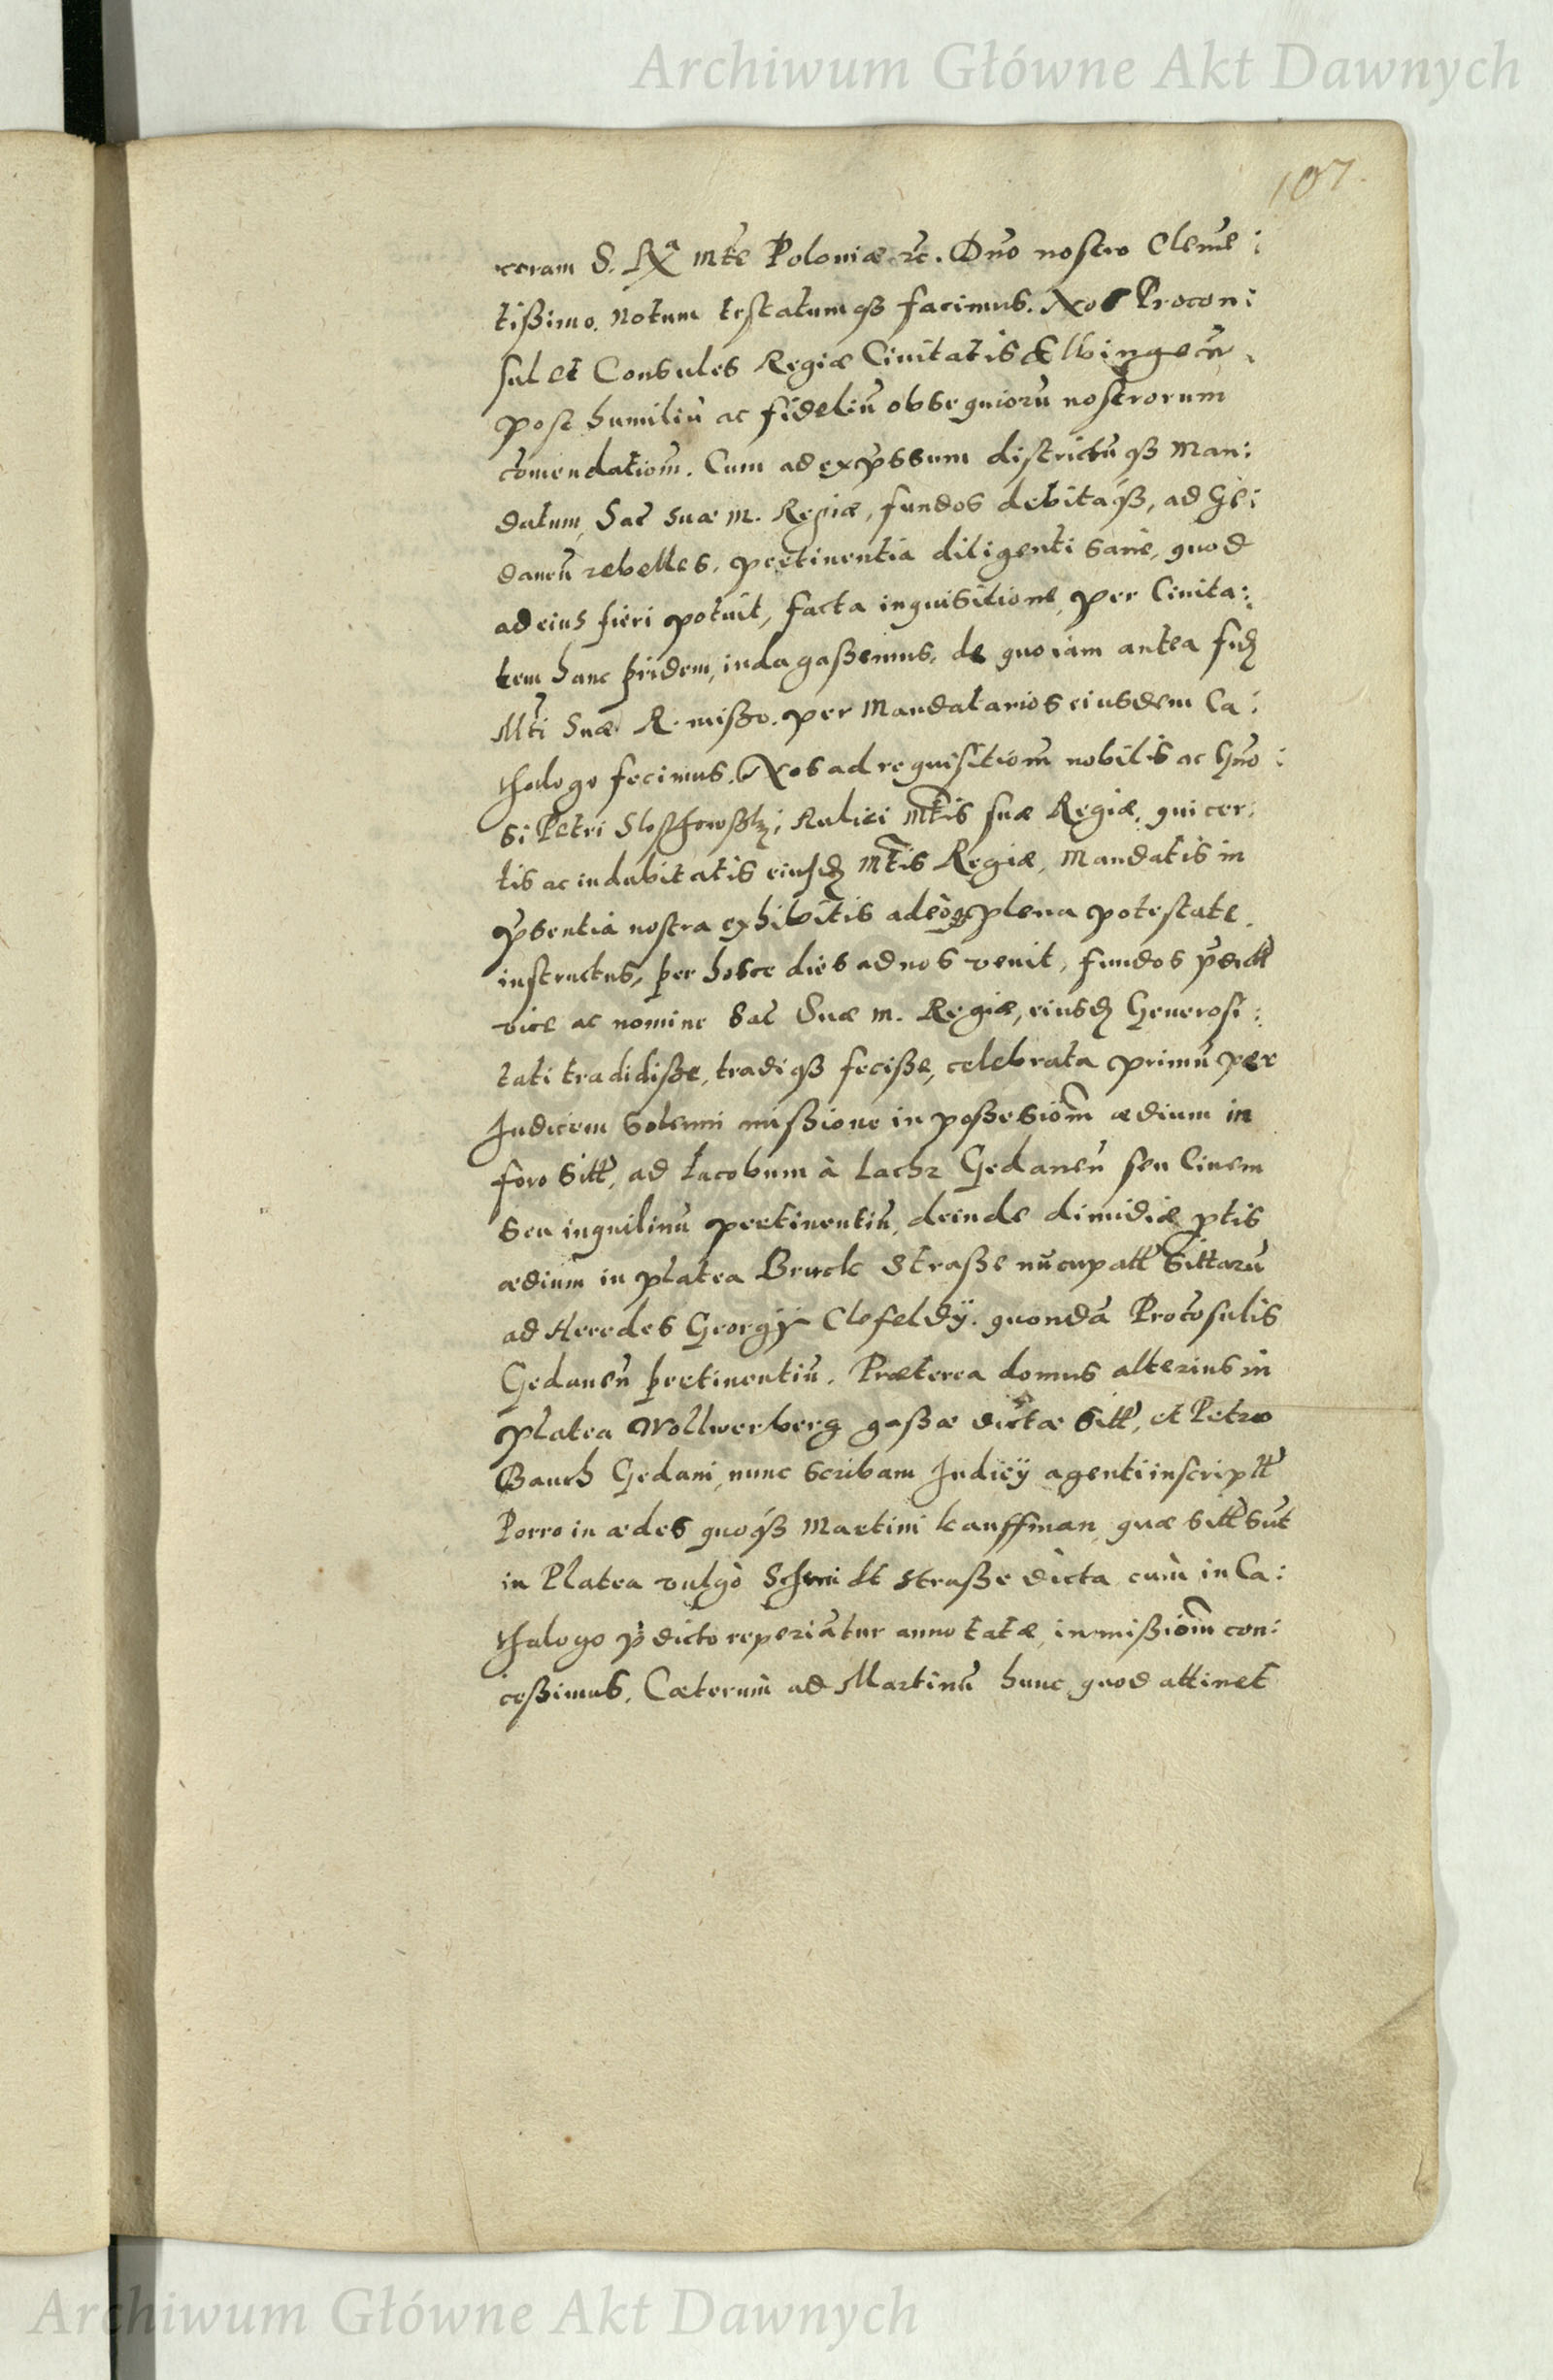 Archiwum Główne Akt Dawnych
107.
coram S. Rᵃ Mte Poloniæ etc. Dno nostro Cleme:
tißimo. Notum testatumqз facimus. Nos Procon:
sul et Consules Regiæ Ciuitatis Elbingeñ.
post humiliũ ac fideliũ obsequiorũ nostrorum
com̃endationẽ. Cum ad exp̃ssum districtũqз Man:
datum, Sac̃ Suæ M. Regiæ, fundos debitaqз, ad Ge:
daneñ rebelles, pertinentia diligenti sane, quod
ad eius fieri potuit, facta inquisitione, per Ciuita:
tem hanc pridem, indagaßemus, de quo iam antea fid
Mti Suæ R. mißo. per Mandatarios eiusdem Ca:
thalogo fecimus. Nos ad requisitionẽ nobilis ac Gño:
si Petri, Aulici Mtis suæ Regiæ, qui cer:
tis ac indubitatis eiusd Mtis Regiæ, Mandatis in
p̃sentia nostra exhibitis adeoqз plena potestate.
instructus, per hosce dies ad nos venit, fundos p̃dictt
vice ac nomine Sac̃ Suæ M. Regiæ, eiusd Generosi:
tati tradidiße, tradiqз feciße, celebrata primũ per
Iudicem Solenni mißione in poßesionẽ ædium in
foro sitt, ad Iacobum à Lachz Gedaneñ seu Ciuem
seu inquilinũ pertinentiũ, deinde dimidiæ p̃tis
ædium in platea Bruck Straße nũcupatt sittarũ
ad Heredes Georgÿ Clefeldÿ. quondã Procõsulis
Gedaneñ pertinentiũ. Præterea domus alterius in
platea Wollwerberg gaßæ dictæ sitt, et Petro
Bauch Gedani, nunc scribam Iudicÿ agenti inscriptt
Porro in ædes quoqз Martini Kauffman, quæ sitt sũt
in Platea vulgò Schmidt straße dicta cum in Ca:
thalogo p̃dicto reperiãtur annotatæ, inmißionẽ con:
ceßimus. Cæterum ad Martinũ hunc quod attinet
Archiwum Główne Akt Dawnych